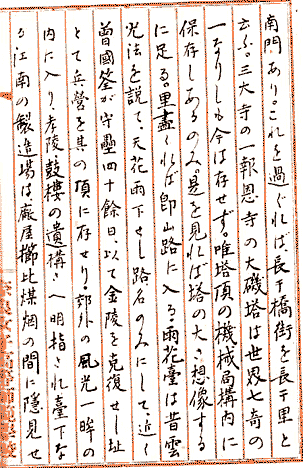 南門あり。これを過ぐれば、長干橋街を長干里と
云ふ。三大寺の一報恩寺の大磁塔は世界七奇の
一なりしも今は存せず。唯塔頂の機械局構内に
保存しあるのみ。是を見れば塔の大さ想像する
に足る。里盡くれば卽山路に入る。雨花臺は昔雲
光法を説て、天花雨下せし路石のみにして、近く
曾國筌が守壘四十餘日、以て金陵を克復せし址
とて兵營を其の頂に存せり。郊外の風光一眸の
内に入り、孝陵鼓樓の遺構一々明指され臺下な
る江南の製造場は廠屋櫛比煤烟の間に隠見せ